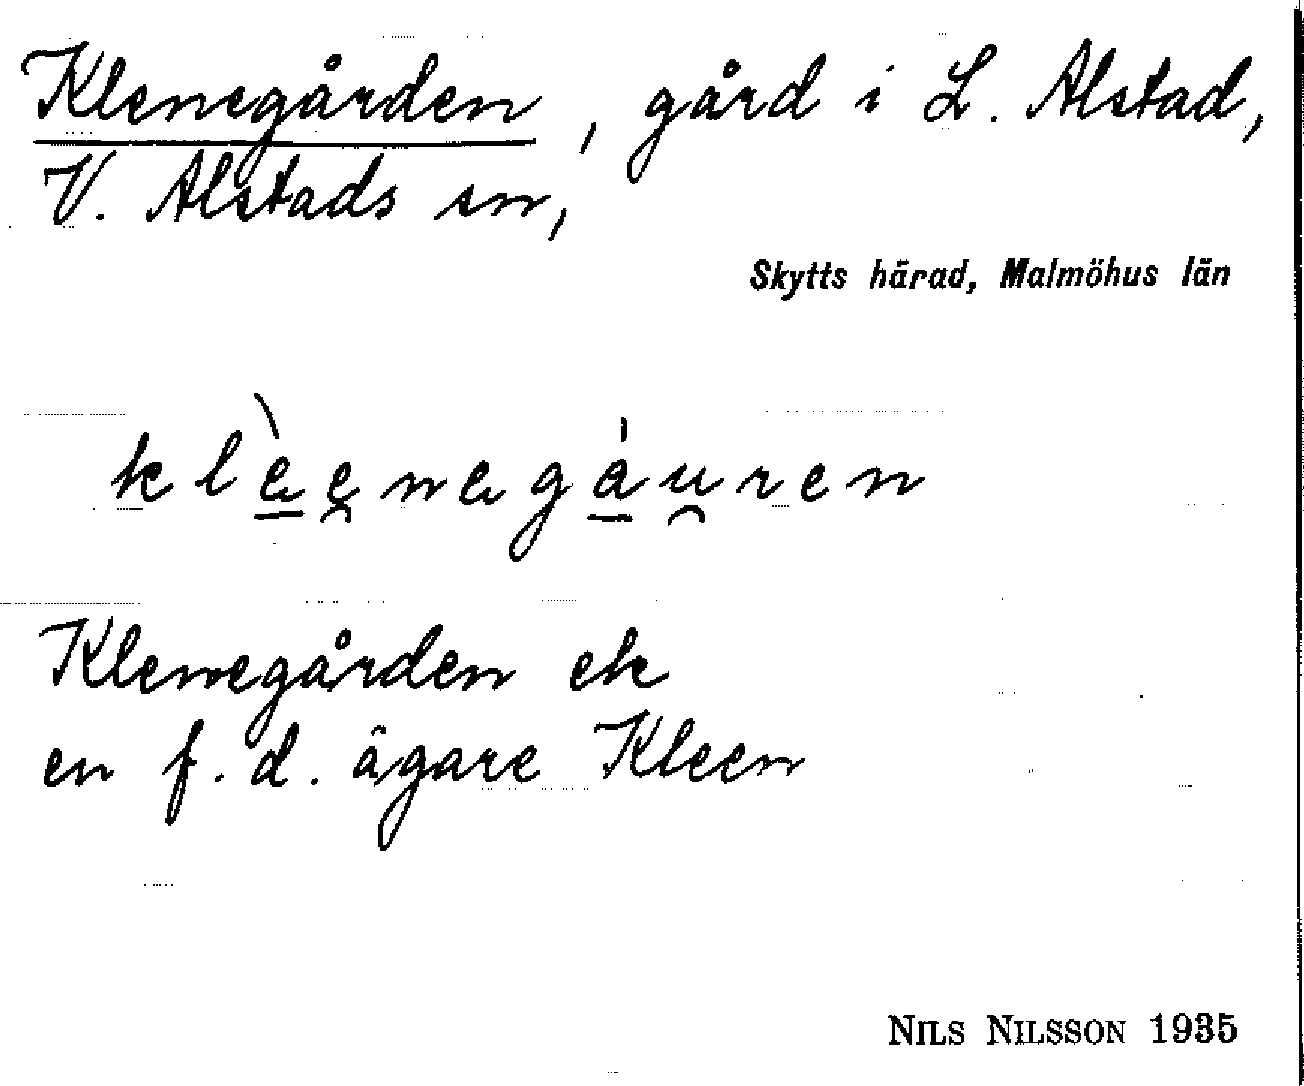 Klenegården, gård i L. Alstad,
V. Alstads sn,
Skytts härad, Malmöhus län
klèenegáuren
Klenegården ek
en f.d. ägare Kleen
NILS NILSSON 1935